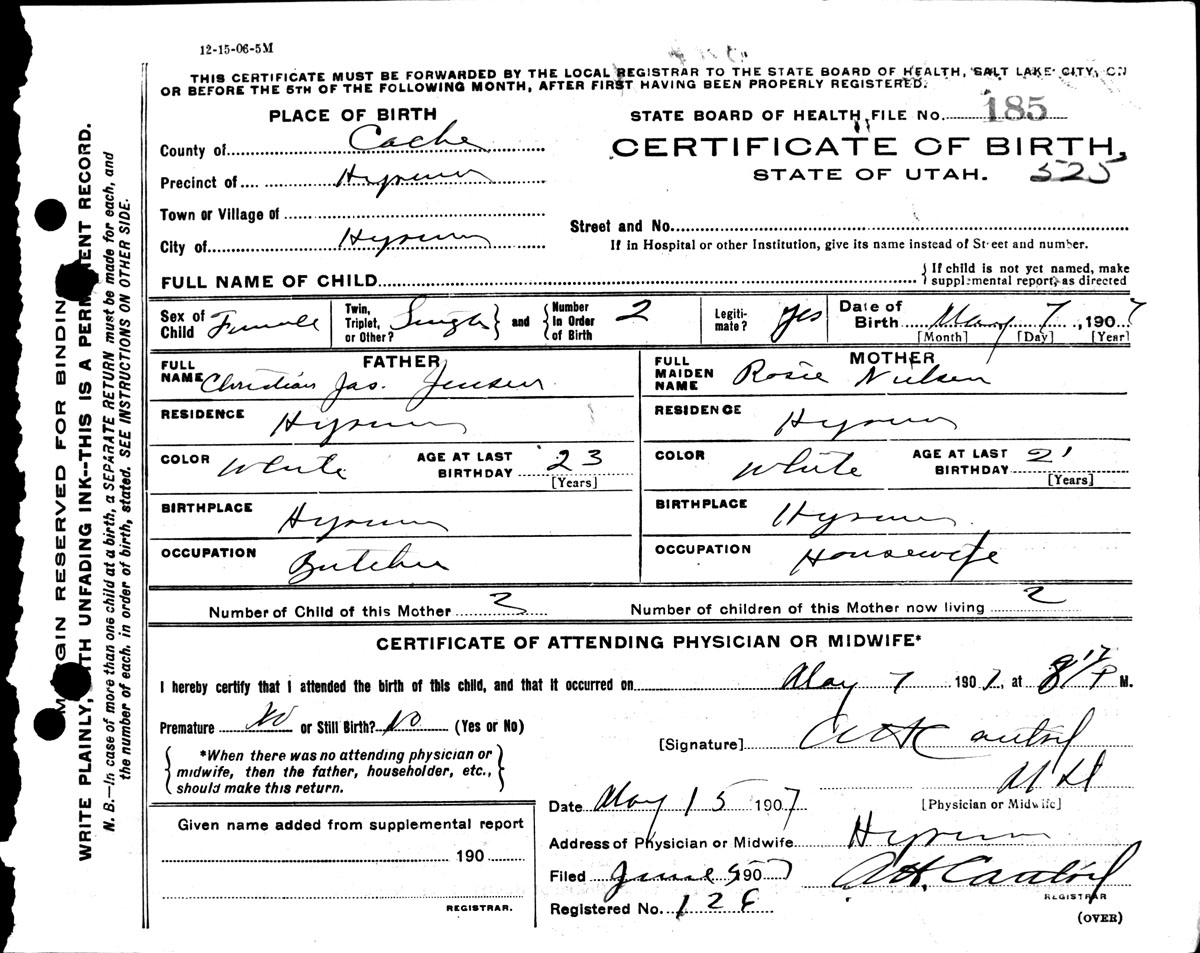 12-15-06-5M
THIS CERTIFICATE MUST BE FORWARDED BY THE LOCAL REGISTRAR TO THE STATE BOARD OF HEALTH, SALT LAKE CITY, ON
OR BEFORE THE 5TH OF THE FOLLOWING MONTH, AFTER FIRST HAVING BEEN PROPERLY REGISTERED.
PLACE OF BIRTH
STATE BOARD OF HEALTH FILE No. 185
County of Cache
CERTIFICATE OF BIRTH,
STATE OF UTAH. 525
Precinct of Hyrum
Town or Village of
Street and No.
City of Hyrum
If in Hospital or other Institution, give its name instead of Street and number.
FULL NAME OF CHILD
{If child is not yet named, make
supplemental report, as directed
Sex of Child Female
Twin, Triplet, or Other? Single } and { Number In Order of Birth 2
Legitimate? yes
Date of Birth May 7, 1907
[Month] [Day] [Year]
FATHER
FULL NAME Christian Jas. Jensen
MOTHER
FULL MAIDEN NAME Rosie Nielsen
RESIDENCE Hyrum
RESIDENCE Hyrum
COLOR White AGE AT LAST BIRTHDAY 23 [Years]
COLOR White AGE AT LAST BIRTHDAY 21 [Years]
BIRTHPLACE Hyrum
BIRTHPLACE Hyrum
OCCUPATION Butcher
OCCUPATION Housewife
Number of Child of this Mother 2 Number of children of this Mother now living 2
CERTIFICATE OF ATTENDING PHYSICIAN OR MIDWIFE*
I hereby certify that I attended the birth of this child, and that it occurred on May 7 1907, at 8 17 P M.
Premature No or Still Birth? No (Yes or No)
{*When there was no attending physician or
midwife, then the father, householder, etc.,
should make this return.}
[Signature]
M D
[Physician or Midwife]
Date May 15 1907
Given name added from supplemental report
190
REGISTRAR.
Address of Physician or Midwife Hyrum
Filed June 5 1907
REGISTRAR
Registered No.
(OVER)
MARGIN RESERVED FOR BINDING
WRITE PLAINLY, WITH UNFADING INK--THIS IS A PERMANENT RECORD.
N. B.—In case of more than one child at a birth, a SEPARATE RETURN must be made for each, and
the number of each, in order of birth, stated. SEE INSTRUCTIONS ON OTHER SIDE.